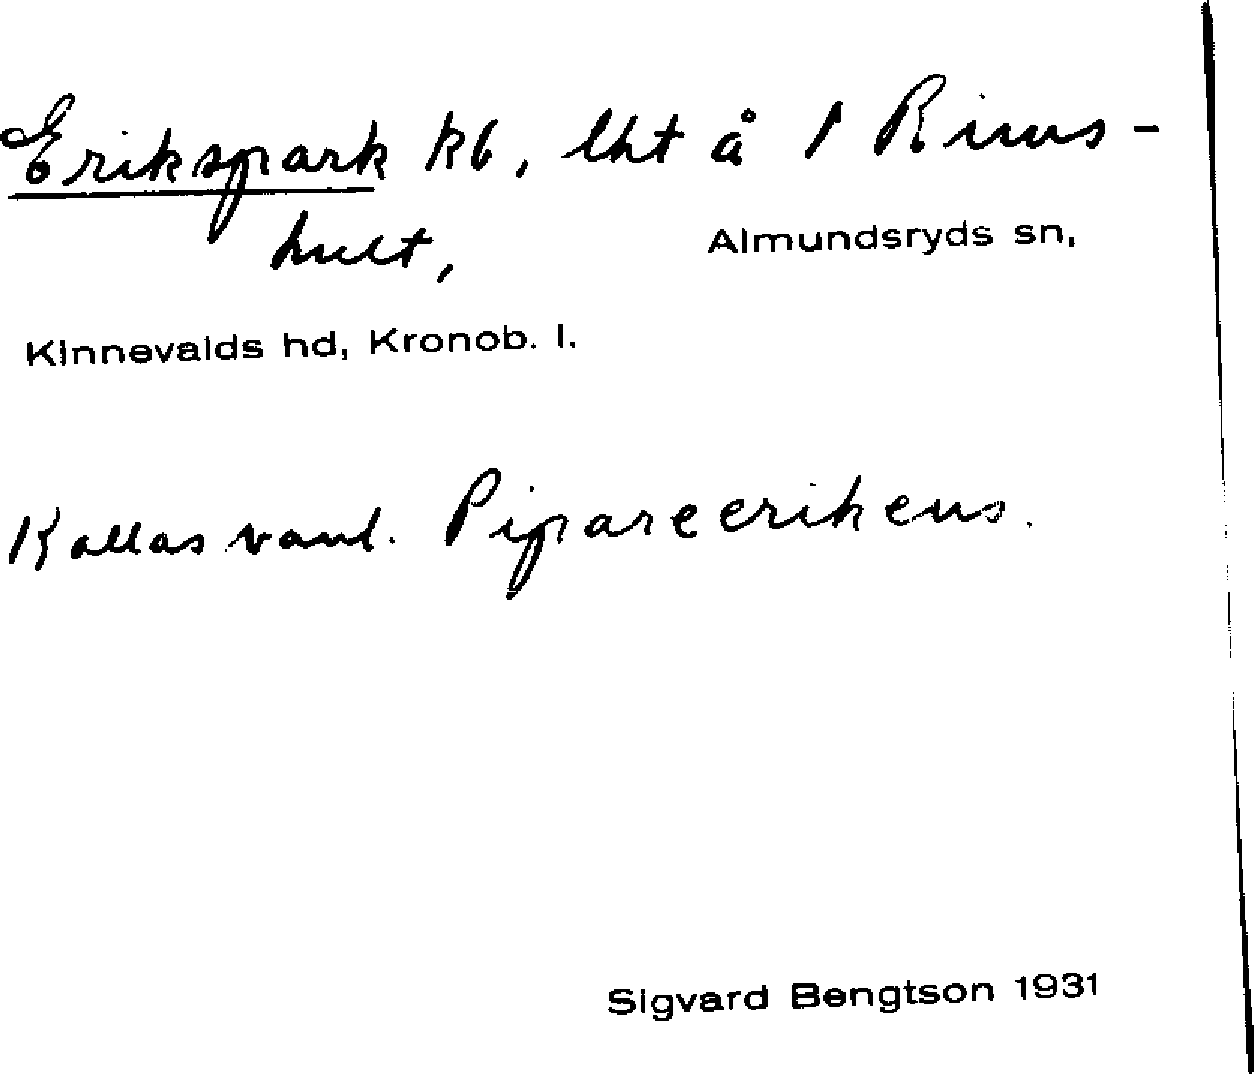 Erikspark kb, lht å 1 Rims-
hult, Almundsryds sn,
Kinnevalds hd, Kronob. l.
Kallas vanl. Pipareerikens.
Sigvard Bengtson 1931